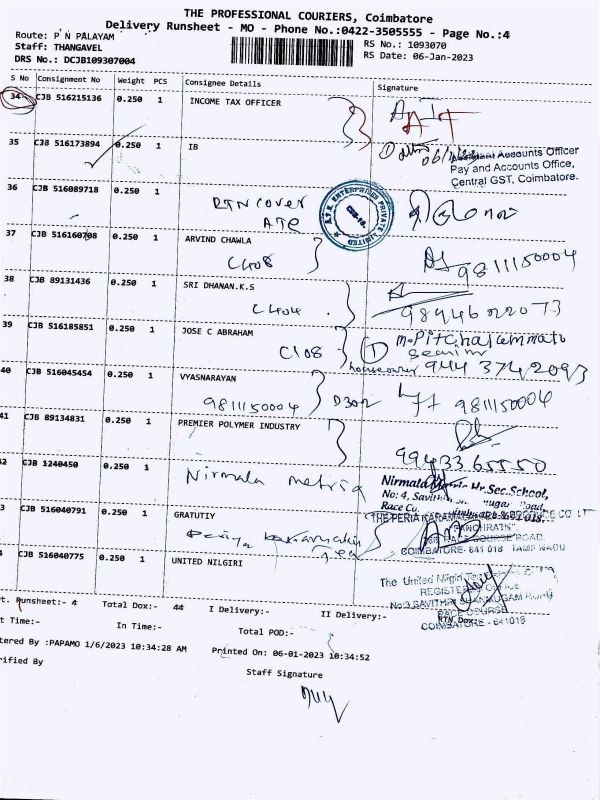 THE PROFESSIONAL COURIERS, Coimbatore
Delivery Runsheet - MO - Phone No.:0422-3505555 - Page No.:4
Route: P N PALAYAM
Staff: THANGAVEL
DRS No.: DCJB109307004
RS No.: 1093070
RS Date: 06-Jan-2023
S No Consignment No Weight PCS Consignee Details Signature
34 CJB 516215136 0.250 1 INCOME TAX OFFICER
35 CJB 516173894 0.250 1 IB
Accounts Officer
Pay and Accounts Office,
Central GST, Coimbatore.
36 CJB 516089718 0.250 1
RTN cover
ATE
A.T.E. ENTERPRISES PRIVATE LIMITED
37 CJB 516160708 0.250 1 ARVIND CHAWLA
C408
9811150004
38 CJB 89131436 0.250 1 SRI DHANAN.K.S
C404
9844622073
39 CJB 516185851 0.250 1 JOSE C ABRAHAM
C108
1
944 3742093
40 CJB 516045454 0.250 1 VYASNARAYAN
9811150004 D302
9811150004
41 CJB 89134831 0.250 1 PREMIER POLYMER INDUSTRY
9943365550
2 CJB 1240450 0.250 1
Nirmala matric
Nirmala Hr.Sec.School,
No: 4, Road,
Race Co.
3 CJB 516040791 0.250 1 GRATUTIY
Periya Karamalai
Tea
THE PERIA KARAMALAI
PANCHRATN
RACE COURSE ROAD,
COIMBATORE- 641 018 TAMIL NADU
CJB 516040775 0.250 1 UNITED NILGIRI
The United Nilgiri Tea
REGISTERED OFFICE
No.3 SAVITHRI SHANMUGAM ROAD
RACE COURSE
COIMBATORE - 641018
RTN Dox:
t. Runsheet:- 4 Total Dox:- 44 I Delivery:- II Delivery:-
t Time:- In Time:- Total POD:-
tered By :PAPAMO 1/6/2023 10:34:28 AM Printed On: 06-01-2023 10:34:52
rified By
Staff Signature